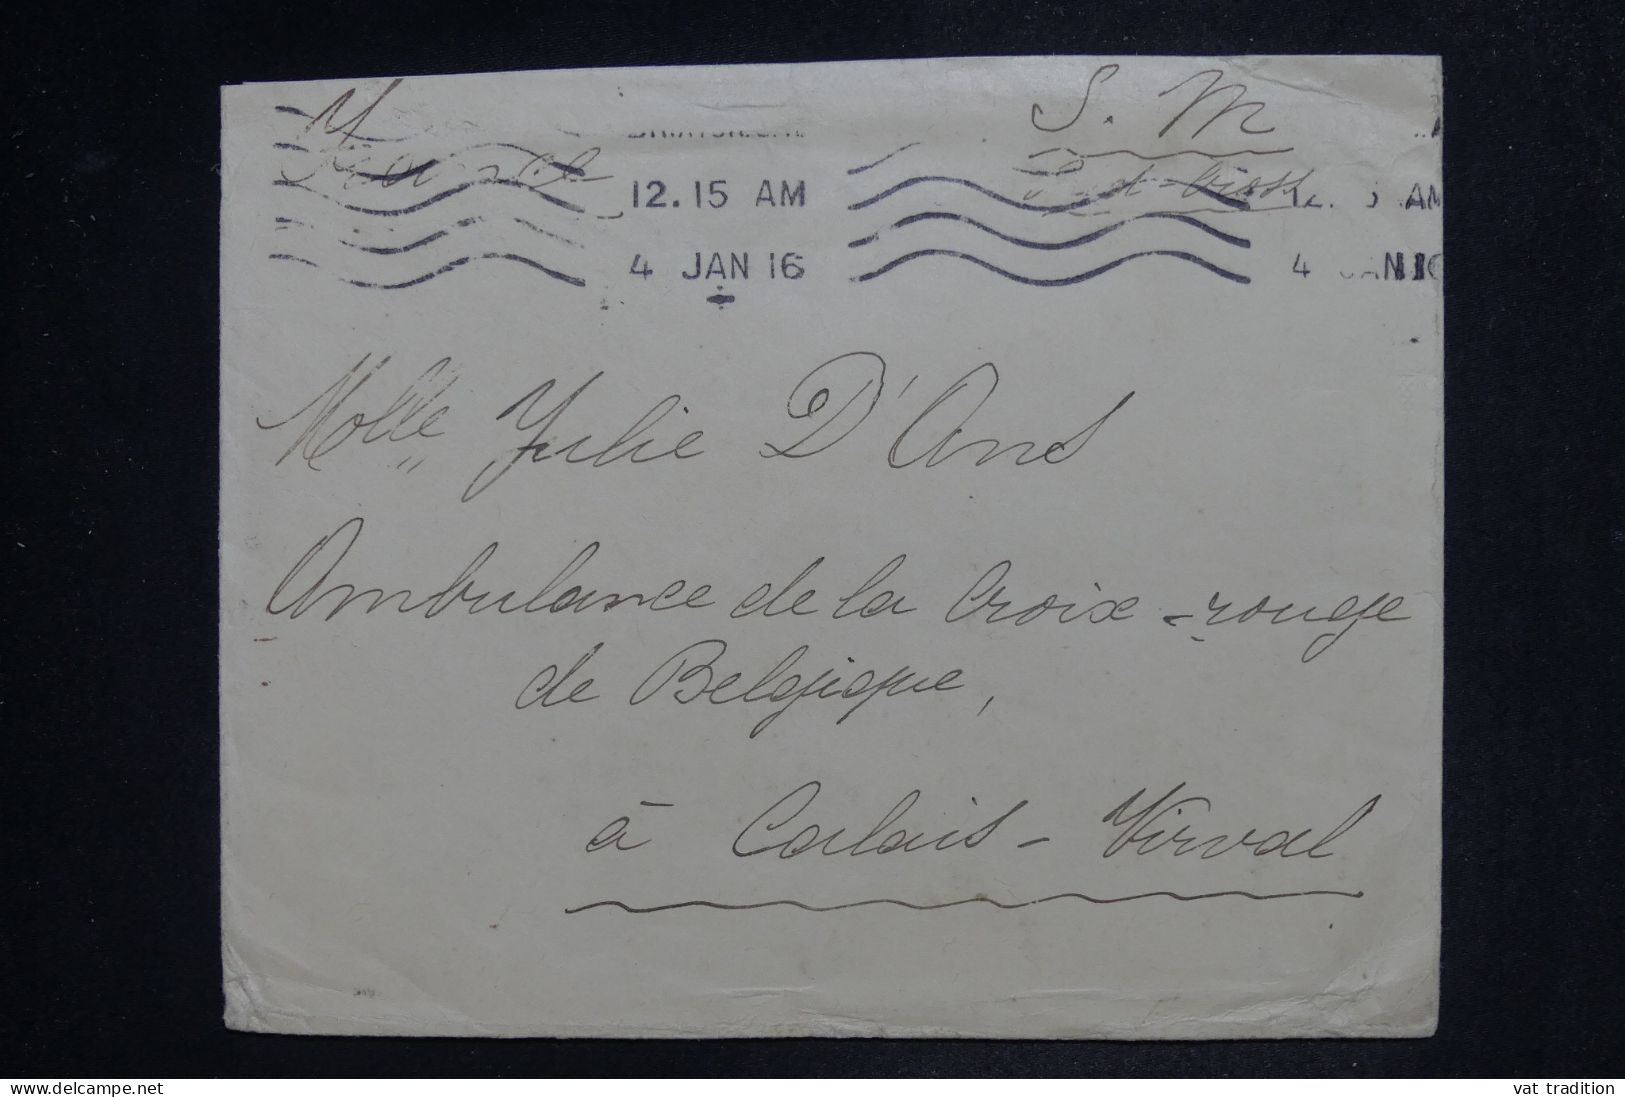 S. M
France
12.15 AM
4 JAN 16
4 JAN 16
Melle Julie D'Ans
Ambulance de la Croix-rouge
de Belgique,
à Calais - Virval
www.delcampe.net
vat tradition